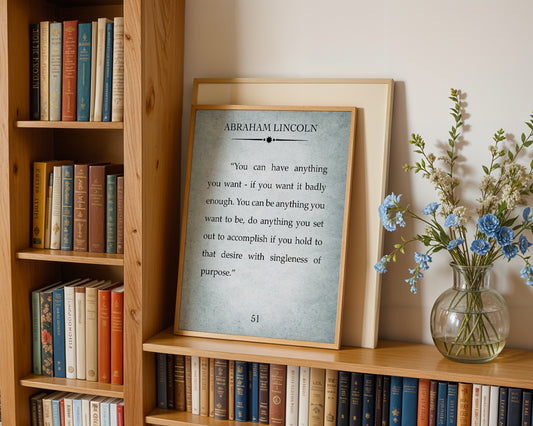 ABRAHAM LINCOLN
“You can have anything
you want - if you want it badly
enough. You can be anything you
want to be, do anything you set
out to accomplish if you hold to
that desire with singleness of
purpose.”
51